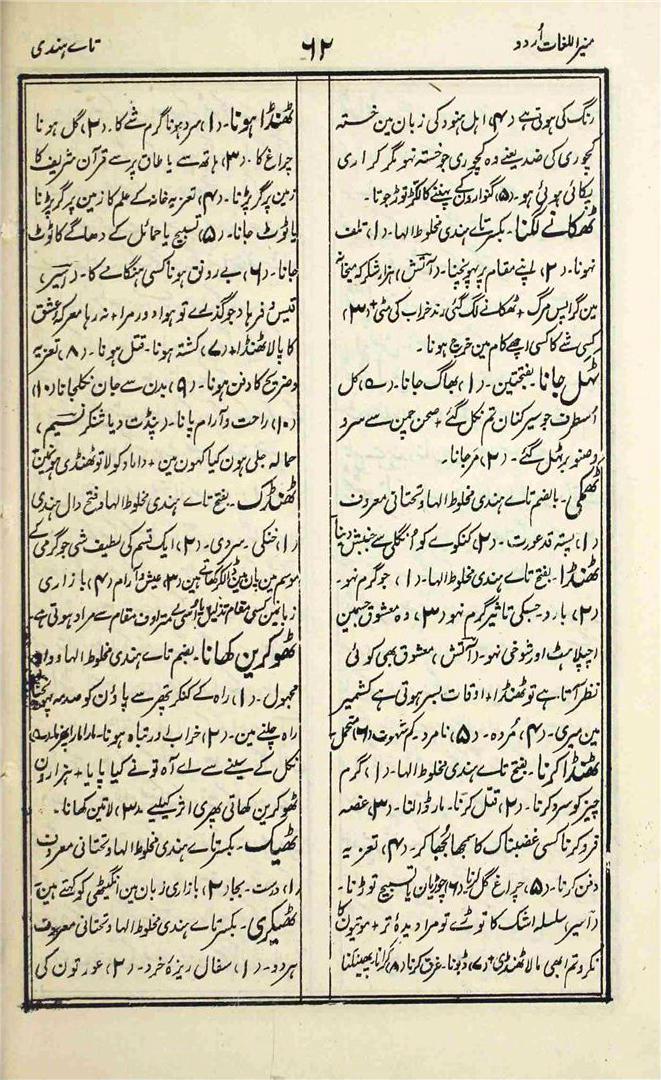 منیر اللغات اُردو
۶۲
تاے ہندی
رنگ کی ہوتی ہے (۴) اہل ہنود کی زبان مین خستہ
کچوری کی ضد یعنے وہ کچوری جو خستہ نہو مگر کراری
پکائی ہوئی ہو۔ (۵) گنوارون کے پہننے کا لکڑ توڑ جوتا۔
ٹھکانے لگنا۔ بکسر تاے ہندی مخلوط الہا۔ (۱) تلف
نہونا۔ (۲) اپنے مقام پر پہونچنا۔ (آتش) ہزار شکر کہ میخانہ
مین گرا پس مرگ + ٹھکانے لگ گئی رند خراب کی مٹی + (۳)
کسی شے کا کسی اچھے کام مین خرچ ہونا۔
ٹہل جانا۔ بفتحتین۔ (۱) بھاگ جانا۔ (ے) کل
اُسطرف جو سیر کنان تم نکل گئے + صحن چمن سے سرو
و صنوبر ٹہل گئے۔ (۲) مرجانا۔
ٹھمکی۔ بالضم تاے ہندی مخلوط الہا و تحتانی معروف
(۱) پستہ قد عورت۔ (۲) کنکوے کو اُنگلی سے جنبش دینا
ٹھنڈا۔ بفتح تاے ہندی مخلوط الہا۔ (۱) جو گرم نہو۔
(۲) بارد جسکی تاثیر گرم نہو (۳) وہ معشوق جسمین
اچپلاہٹ اور شوخی نہو۔ (آتش) معشوق بھی کوئی
نظر آتا ہے تو ٹھنڈا + اوقات بسر ہوتی ہے کشمیر
مین میری۔ (۴) مُردہ۔ (۵) نامرد۔ کم شہوت (۶) متحمل
ٹھنڈا کرنا۔ بفتح تاے ہندی مخلوط الہا۔ (۱) گرم
چیز کو سرد کرنا۔ (۲) قتل کرنا۔ مار ڈالنا۔ (۳) غصہ
فرو کرنا کسی غضبناک کا سمجھا بُجھا کر۔ (۴) تعزیہ
دفن کرنا۔ (۵) چراغ گل کرنا (۶) چوڑیان یا تسبیح توڑنا۔
(اسیر) سلسلہ اشک کا توڑے تو مرا دیدۂ تر + موتیون کا
نکرو تم ابھی مالا ٹھنڈی + (۷) ڈبونا۔ غرق کرنا (۸) گرانا۔ پھینکنا
ٹھنڈا ہونا۔ (۱) سرد ہونا گرم شے کا۔ (۲) گل ہونا
چراغ کا۔ (۳) ہاتھ سے یا طاق پر سے قرآن شریف کا
زمین پر گر پڑنا۔ (۴) تعزیہ خانہ کے علم کا زمین پر گر پڑنا
یا ٹوٹ جانا۔ (۵) تسبیح یا حمائل کے دھاگے کا ٹوٹ
جانا۔ (۶) بے رونق ہونا کسی ہنگامے کا۔ (اسیر)
قیس و فرہاد جو گذرے تو ہوا دور مرا + نہ رہا معرکۂ عشق
کا پالا ٹھنڈا + (۷) کشتہ ہونا۔ قتل ہونا۔ (۸) تعزیہ
و ضریح کا دفن ہونا۔ (۹) بدن سے جان نکلجانا (۱۰)
(۱۰) راحت و آرام پانا۔ (پنڈت دیا شنکر نسیم)
حمالہ جلی ہون کیا کہون مین + داماد کو لا تو ٹھنڈی ہون مین
ٹھنڈک۔ بفتح تاے ہندی مخلوط الہا و فتح دال ہندی
(۱) خنکی۔ سردی۔ (۲) ایک قسم کی لطیف شی جو گرمی کے
موسم مین پان مین ڈالکر کھاتے ہین (۳) عیش و آرام (۴) بازاری
زبانمین کسی مقام تذلیل یا اُسی کے مترادف مقام سے مراد ہوتی ہے۔
ٹھوکرین کھانا۔ بضم تاے ہندی مخلوط الہا و واو
مجہول۔ (۱) راہ کے کنکر پتھر سے پاؤن کو صدمہ پہونچنا
راہ چلنے مین۔ (۲) خراب اور تباہ ہونا۔ مارا مارا پھرنا۔ (ے)
نکل کے سینے سے اے آہ تو نے کیا پایا + ہزارون
ٹھوکرین کھاتی پھری اثر کیلیے۔ (۳) لاتین کھانا۔
ٹھیک۔ بکسر تاے ہندی مخلوط الہا و تحتانی معروف
(۱) درست۔ بجا (۲) بازاری زبان مین انگیٹھی کو کہتے ہین۔
ٹھیکری۔ بکسر تاے ہندی مخلوط الہا و تحتانی معروف
ہر دو۔ (۱) سفال ریزۂ خرد۔ (۲) عورتون کی